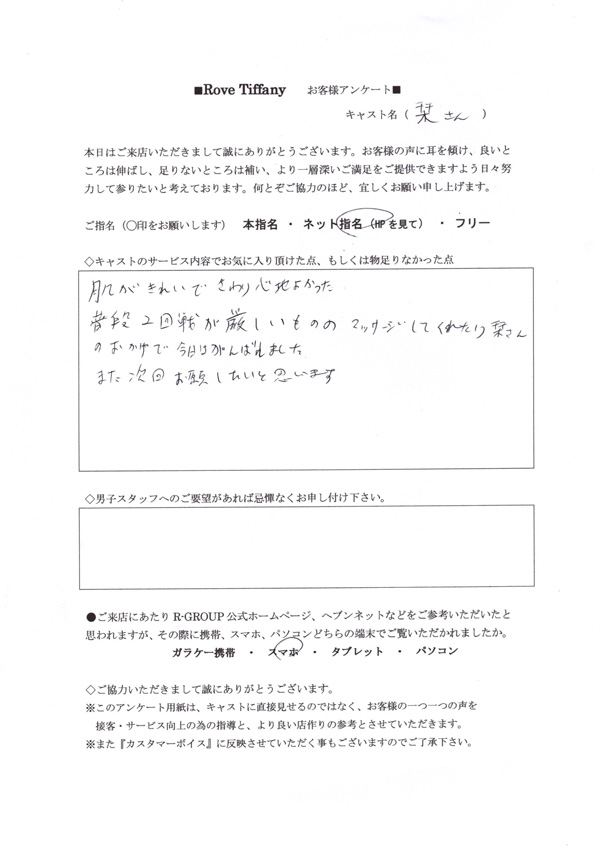 ■Rove Tiffany　お客様アンケート■
キャスト名（ 栞さん ）
本日はご来店いただきまして誠にありがとうございます。お客様の声に耳を傾け、良いと
ころは伸ばし、足りないところは補い、より一層深いご満足をご提供できますよう日々努
力して参りたいと考えております。何とぞご協力のほど、宜しくお願い申し上げます。
ご指名（〇印をお願いします）　本指名　・　ネット指名（HPを見て）　・　フリー
◇キャストのサービス内容でお気に入り頂けた点、もしくは物足りなかった点
肌がきれいでさわり心地よかった
普段2回戦が厳しいものの マッサージしてくれたり栞さん
のおかげで今日はがんばれました
また次回お願したいと思います
◇男子スタッフへのご要望があれば忌憚なくお申し付け下さい。
●ご来店にあたり R-GROUP 公式ホームページ、ヘブンネットなどをご参考いただいたと
思われますが、その際に携帯、スマホ、パソコンどちらの端末でご覧いただかれましたか。
ガラケー携帯　・　スマホ　・　タブレット　・　パソコン
◇ご協力いただきまして誠にありがとうございます。
※このアンケート用紙は、キャストに直接見せるのではなく、お客様の一つ一つの声を
接客・サービス向上の為の指導と、より良い店作りの参考とさせていただきます。
※また『カスタマーボイス』に反映させていただく事もございますのでご了承下さい。